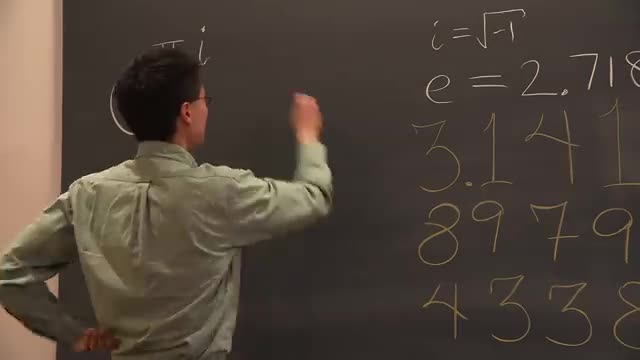 πi
i = √-1
e = 2.718
3.141
8979
4338